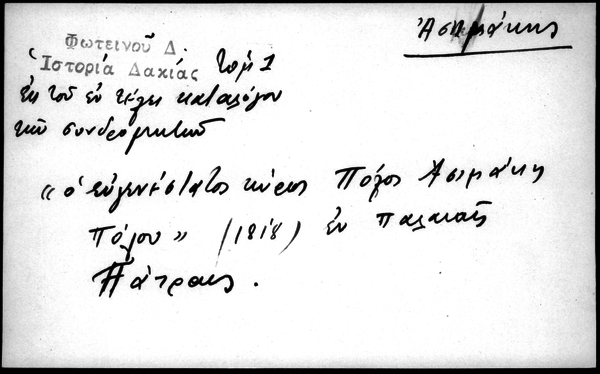 Ἀσημάκης
Φωτεινοῦ Δ.
Ἱστορία Δακίας τομ 1
ἐκ τοῦ ἐν τέλει καταλόγου
τῶν συνδρομητῶν
« ὁ εὐγενέστατος κύριος Πόγος Ἀσημάκη
Πόγου » (1818) ἐν παλαιαῖς
Πάτραις.